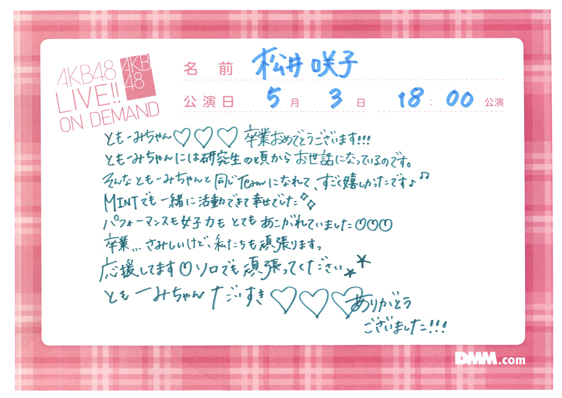 AKB48
LIVE!!
ON DEMAND
AKB
48
名 前 松井咲子
公演日 5月 3日 18:00公演
ともーみちゃん♡♡♡ 卒業おめでとうございます!!!
ともーみちゃんには研究生の頃からお世話になっているのです。
そんなともーみちゃんと同じTeamになれて、すごく嬉しかったです♪♫
MINTでも一緒に活動できて幸せでした✧✧
パフォーマンスも女子力もとてもあこがれていました♡♡♡
卒業...さみしいけど、私たちも頑張ります。
応援してます♡ソロでも頑張ってください★★
ともーみちゃん だいすき♡♡♡ありがとう
ございました!!!
DMM.com